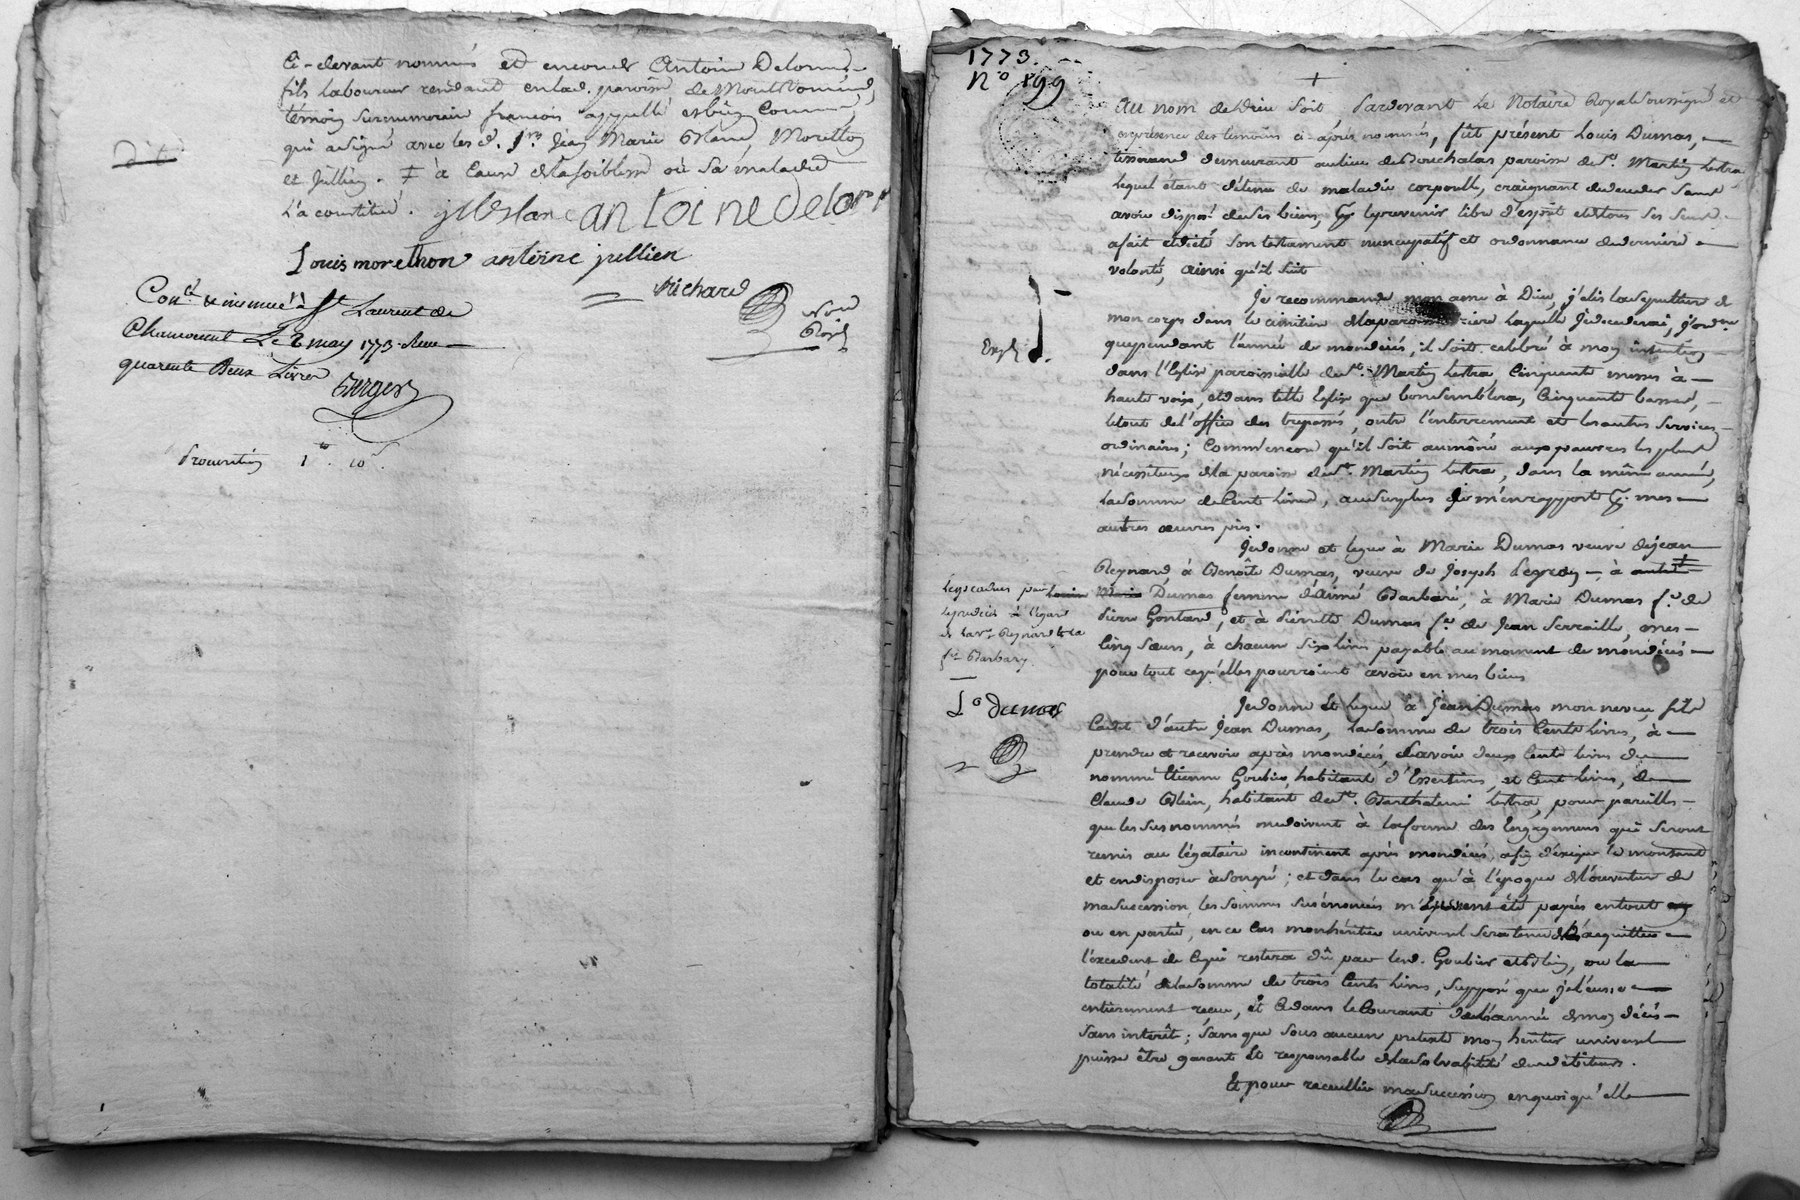 ci-devant nommés et encore Antoine Delorme
fils laboureur résidant en lad. paroisse de
témoin surnuméraire françois appellé
qui a signé avec les d. Srs Jean Marie Blanc, Moretton
et Jullien. ╪ à cause de la foiblesse où sa maladie
l'a constitué. jmblanc antoine delorme
Louis morethon antoine jullien
Richard
Nore
Royal
dit
Conlé & insinué à St Laurent de
Chamousset Le 2 may 1773. Reçu
quarente Deux Livres
Berger
1lt. 10s.
1773.
No 899
+
Au nom de Dieu soit Pardevant Le Notaire Royal Soussigné et
en présence des témoins ci-après nommés, fut présent Louis Dumas,
tisserand demeurant au lieu de Bouchalas paroisse de St. Martin Lestra
lequel étant détenu de maladie corporelle, craignant de décéder sans
avoir disposé de ses biens, pr. le prévenir libre d'esprit et de tous ses sens
a fait et dicté son testament nuncupatif et ordonnance de dernière
volonté, ainsi qu'il suit
Je recommande mon ame à Dieu, j'élis la sepulture de
mon corps dans le cimetière de la paroisse rière laquelle je décéderai, j'ordonne
que pendant l'année de mon décès, il soit celebré à mon intention
dans l'Eglise paroissielle de St. Martin Lestra Cinquante messes à
haute voix, et dans telle Eglise que bon semblera, Cinquante basses,
le tout de l'office des trepassés, outre l'enterrement et les autres services
ordinaires; Comme encore qu'il soit aumôné aux pauvres les plus
nécessiteux de la paroisse de St. Martin Lestra, dans la même année,
la somme de Cent Livres, au surplus je m'en rapporte pr. mes
autres œuvres pies.
Expé
Je donne et legue à Marie Dumas veuve de jean
Reynard, à Benoîte Dumas, veuve de Joseph Legrey, à
Marie Dumas femme d'Aimé Barbari, à Marie Dumas fe. de
Pierre Gontard, et à Pierrette Dumas fe. de Jean Serraille, mes
Cinq Sœurs, à chacune Six livres payable au moment de mon décès
pour tout ce qu'elles pourroient avoir en mes biens
à l'égard
de la ve. Reynard & la
fe. Barbary.
Ls dumas
Je donne et legue à Jean Dumas mon neveu, fils
Cadet d'autre Jean Dumas, la somme de trois Cents livres, à
prendre et recevoir après mon décès, Savoir deux Cents livres de
nommé Etienne Goubier, habitant d'Essertines, et Cent livres, de
Claude Blein, habitant de St. Barthelemi Lestra, pour pareilles
que les susnommés me doivent à la forme des Engagemens qui seront
remis au légataire incontinent après mon décès, afin d'exiger le montant
et en disposer à son gré; et dans le cas qu'à l'époque de l'ouverture de
ma succession, les sommes susénoncées m'eussent été payées en tout
ou en partie, en ce Cas mon héritier universel sera tenu d'acquitter
l'excedent de ce qui restera dû par lesd. Goubier et Blein, ou la
totalité de la somme de trois Cents livres, supposé que je l'eusse
entierement reçue, et ce dans le Courant de l'année de mon décès
sans interêt; sans que sous aucun pretexte mon héritier universel
puisse être garant et responsable de la solvabilité des débiteurs.
Et pour recueillir ma succession en quoi qu'elle